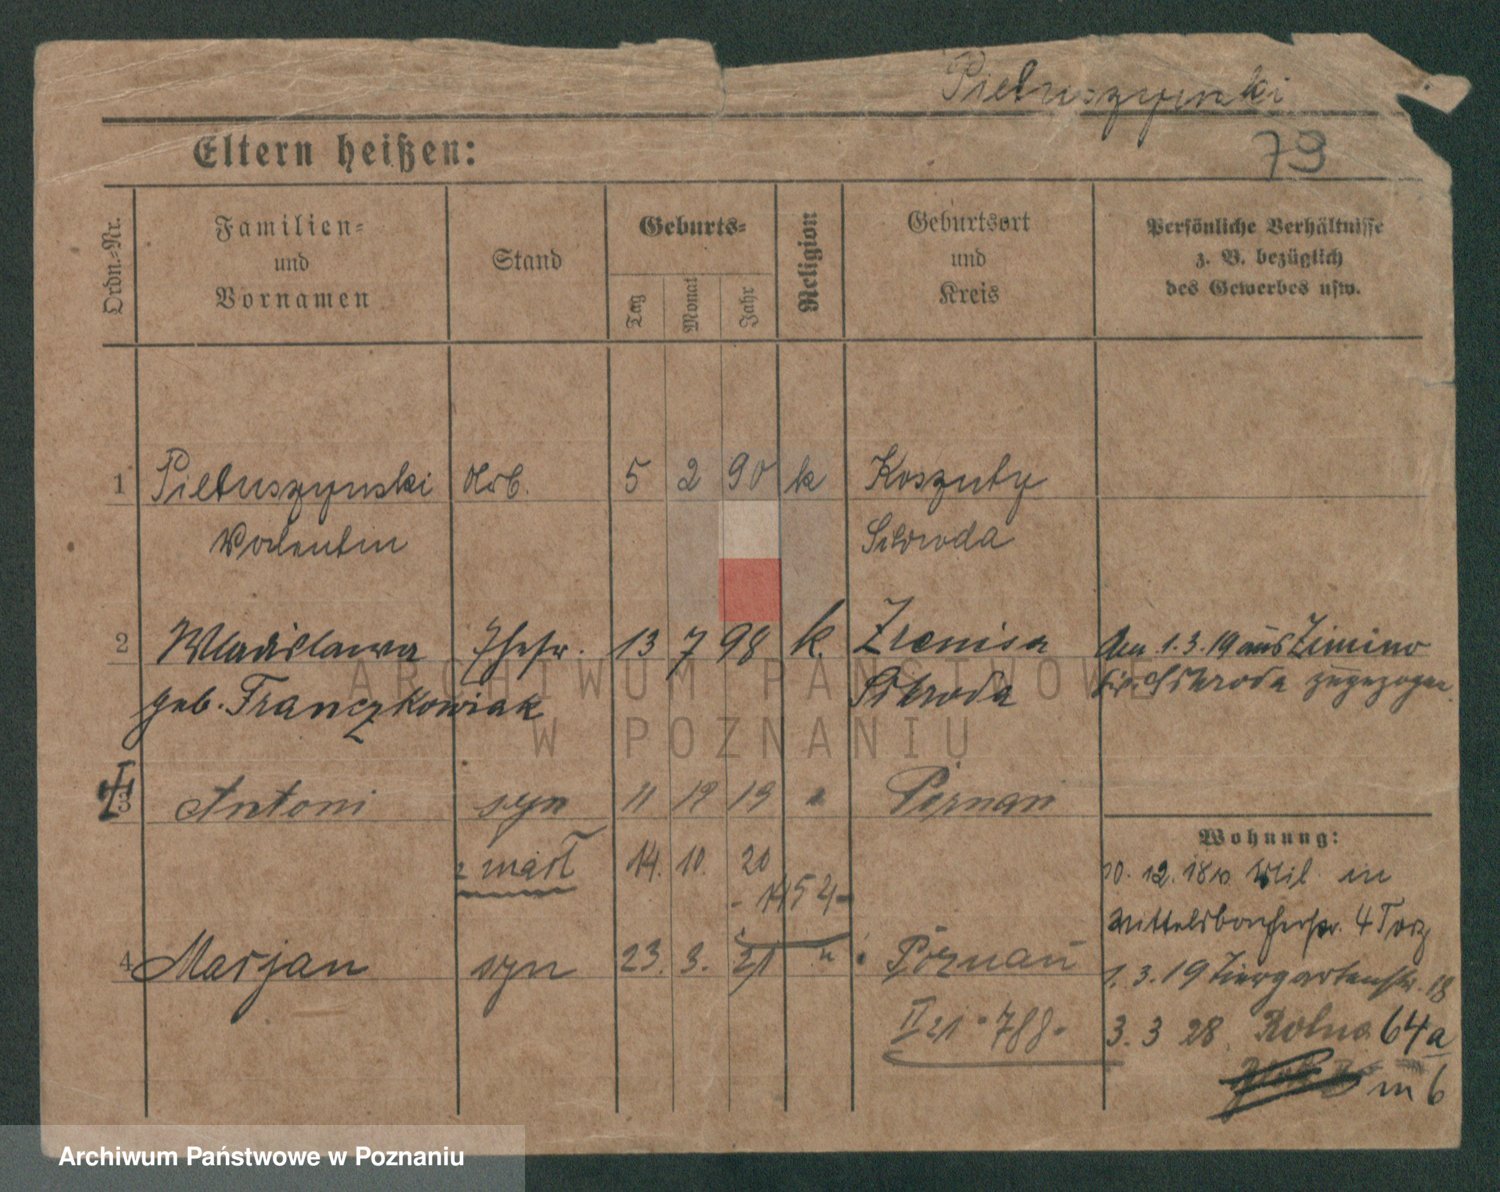 Pietuszynski
79
Eltern heißen:
Ordn.-Nr.
Familien-
und
Vornamen
Stand
Geburts-
Tag
Monat
Jahr
Religion
Geburtsort
und
Kreis
Persönliche Verhältnisse
z. B. bezüglich
des Gewerbes usw.
1 Pietuszynski Arb. 5 2 90 k Koszuty
Valentin Schroda
2 Wladislawa Ehefr. 13 7 98 k. Zrenica Am 1.3.19 aus Zimino
geb. Franczkowiak Schroda Kr. Schroda zugezogen.
3 Antoni syn 11 12 19 " Poznań
Wohnung:
zmarł 14. 10. 20
- 1452 -
10. 12. 18 Mil. in
Mittelsbacherstr. 4
4 Marjan syn 23. 3. 21 " Poznań
1. 3. 19 Tiergartenstr. 18
II 21 - 788 -
3. 3 28. Rolna 64a
m 6
ARCHIWUM PAŃSTWOWE
W POZNANIU
Archiwum Państwowe w Poznaniu